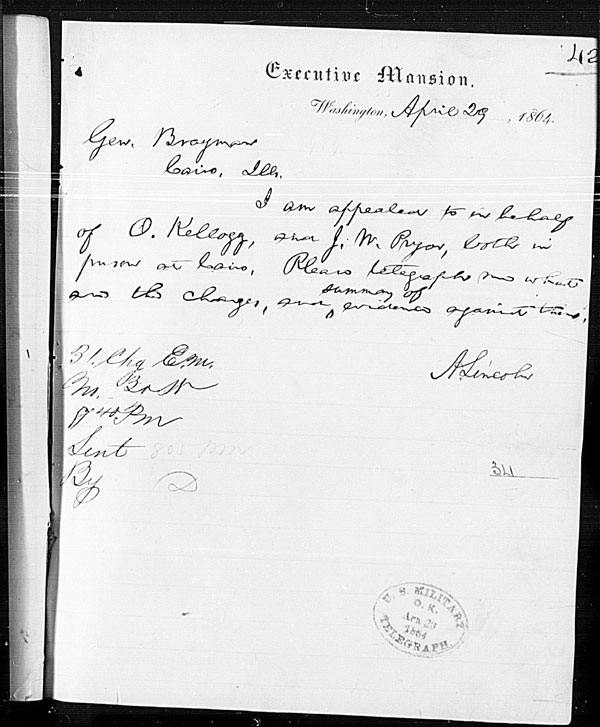 42
Executive Mansion,
Washington, April 29, 1864.
Gen. Brayman
Cairo, Ills.
I am appealed to in behalf
of O. Kellogg, and J. W. Pryor, both in
prison at Cairo. Please telegraph me what
are the charges, and summary of evidence against them.
A. Lincoln
31. Chg E.M.
No.
8 40 Pm
Sent 805 PM
By D
34
U. S. MILITARY
O. K.
Apr 29
1864
TELEGRAPH.